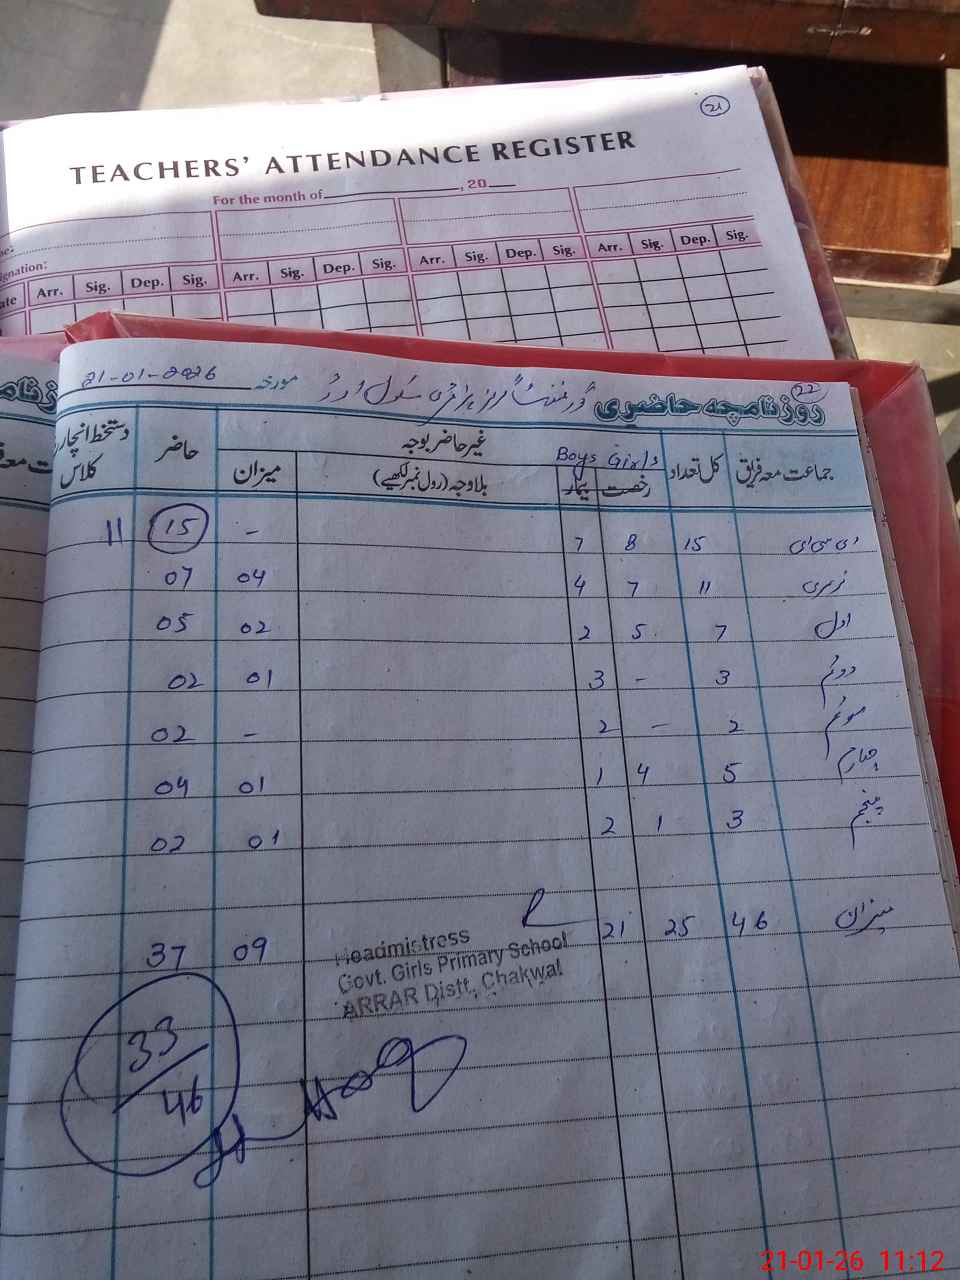 21
TEACHERS' ATTENDANCE REGISTER
For the month of ________, 20__
ignation:
ate Arr. Sig. Dep. Sig. Arr. Sig. Dep. Sig. Arr. Sig. Dep. Sig. Arr. Sig. Dep. Sig.
22
روزنامچہ حاضری گورنمنٹ گرلز پرائمری سکول ارڑ مورخہ 21-01-2026
جماعت معہ فریق کل تعداد Boys Girls غیر حاضر بوجہ حاضر دستخط انچارج کلاس
رخصت بیمار بلاوجہ (رول نمبر لکھیے) میزان
ای سی ای 15 8 7 - 15 11
نرسری 11 7 4 04 07
اول 7 5 2 02 05
دوئم 3 - 3 01 02
سوئم 2 - 2 - 02
چہارم 5 4 1 01 04
پنجم 3 1 2 01 02
میزان 46 25 21 09 37
Headmistress
Govt. Girls Primary School
ARRAR Distt. Chakwal
33/46
21-01-26 11:12